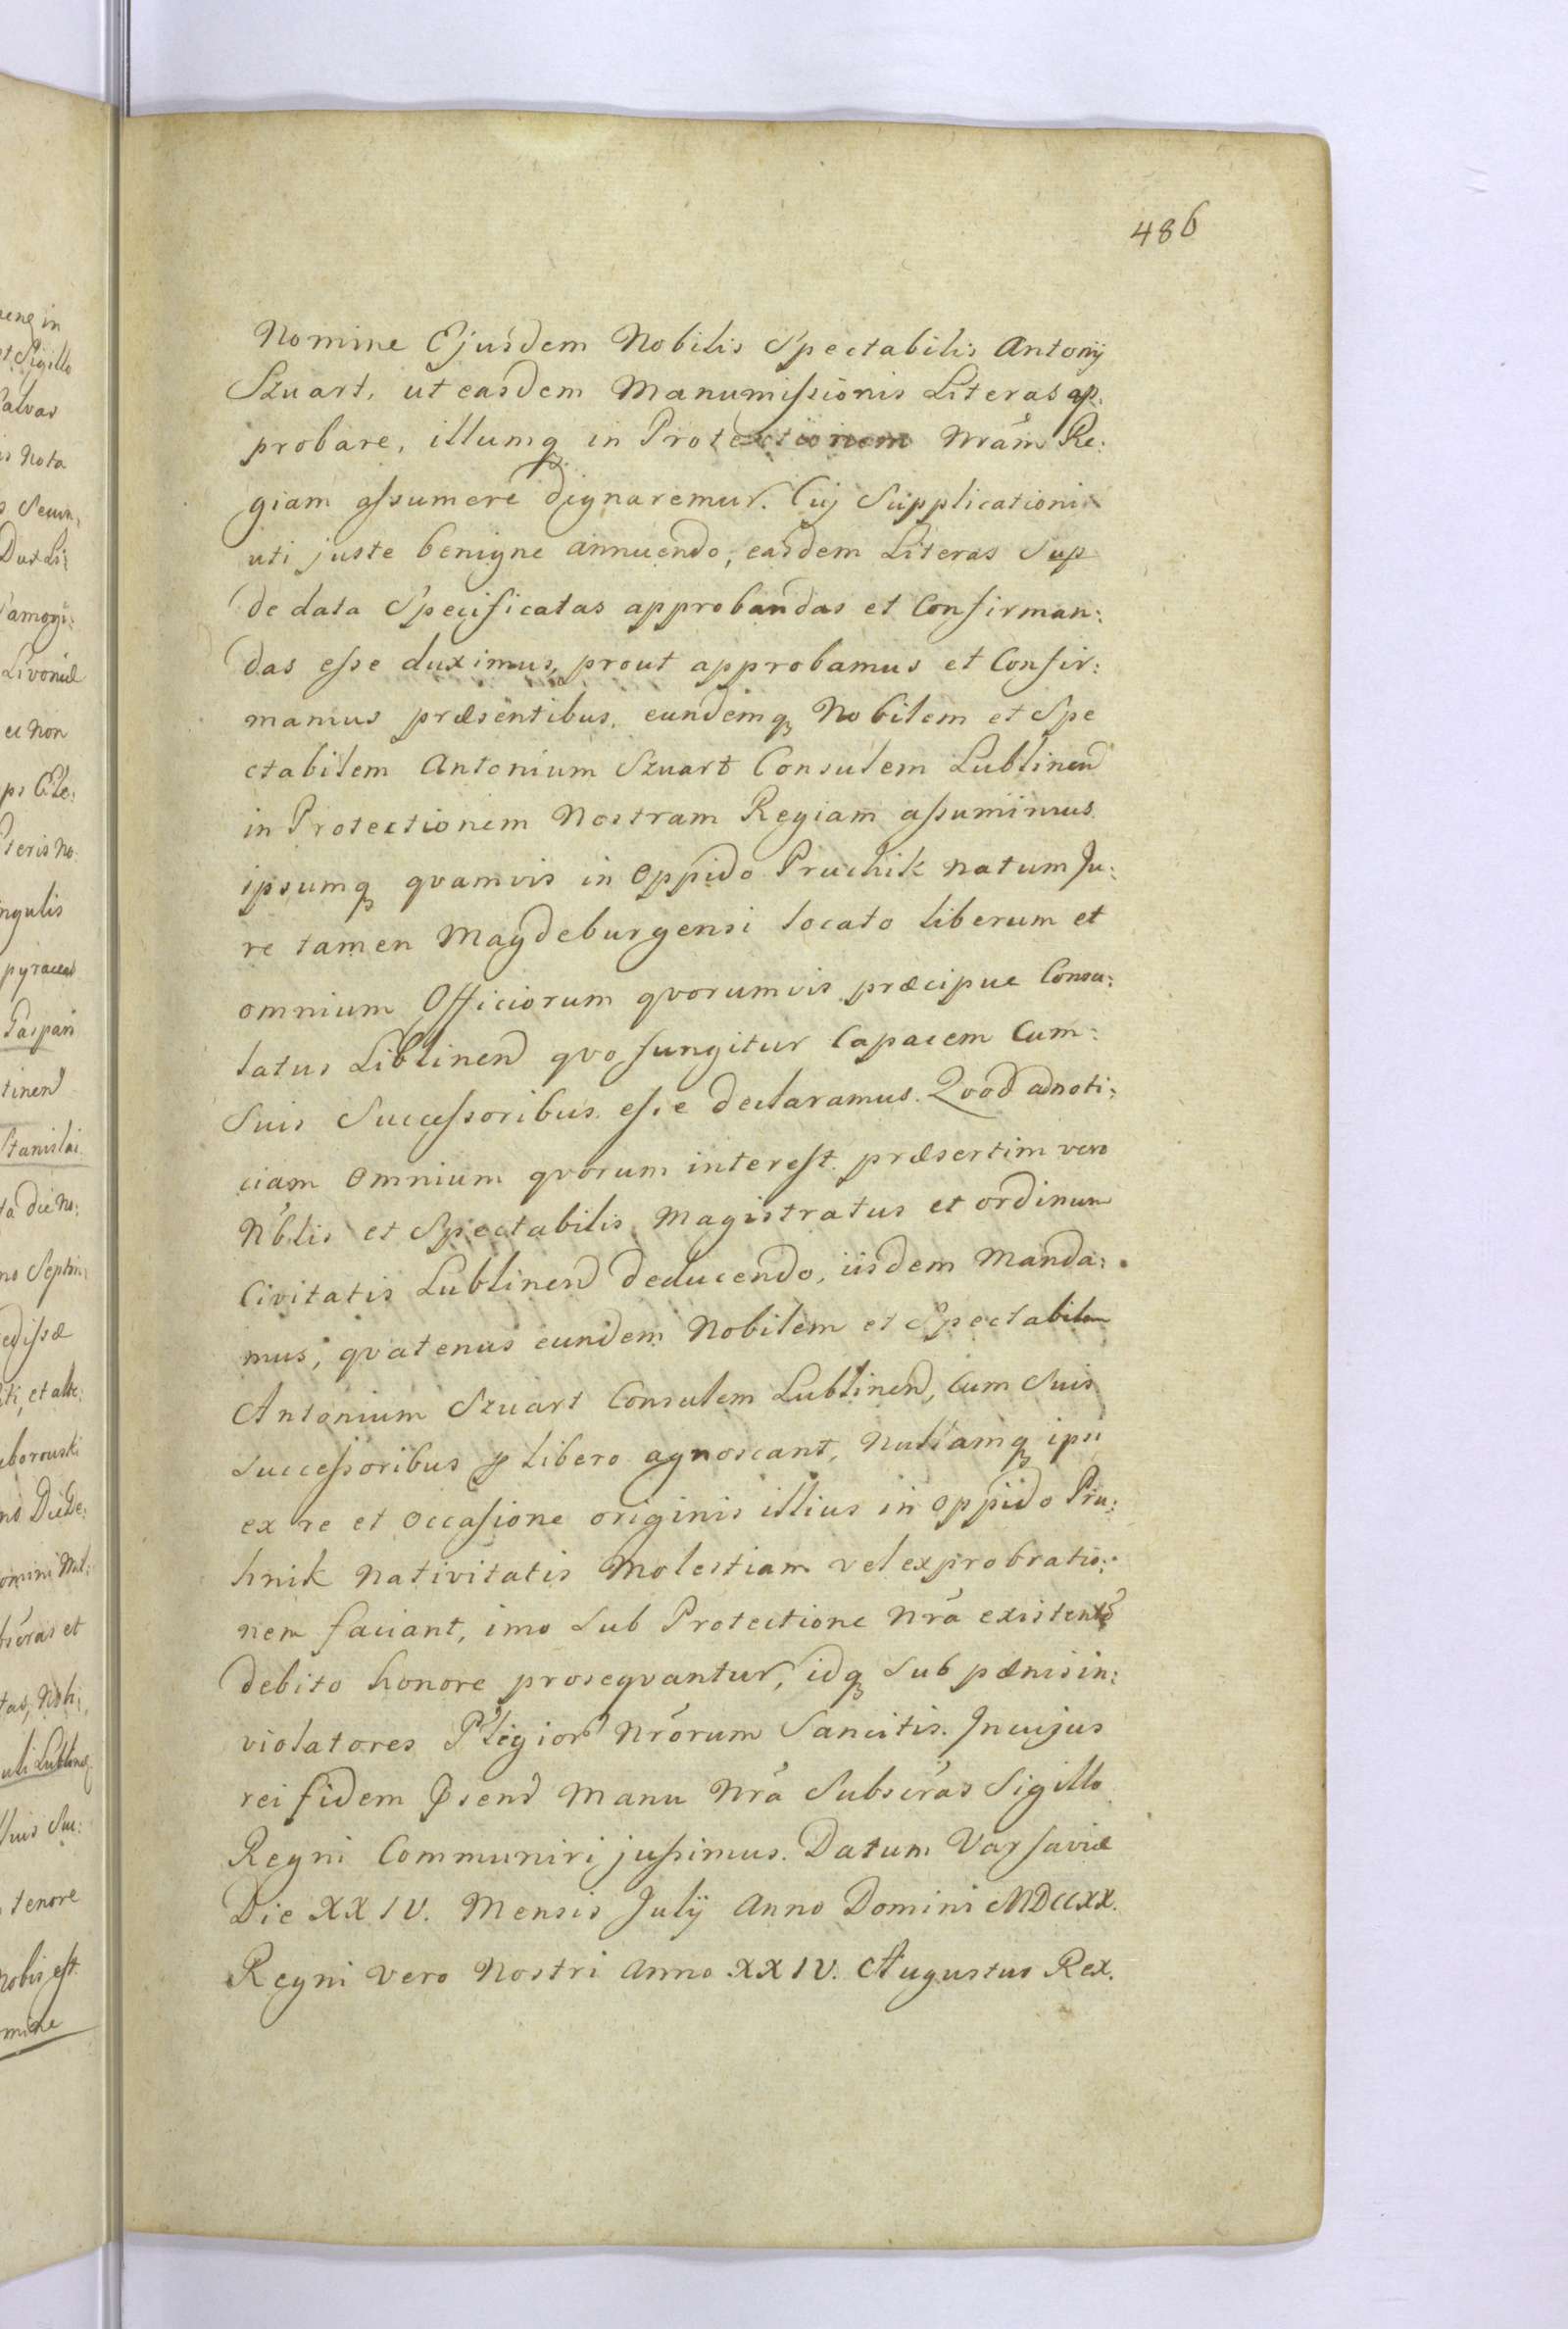 486
Nomine Ejusdem Nobilis Spectabilis Antonij
Szuart, ut easdem Manumissionis Literas ap:
probare, illumq in Protectionem Nrãm Re:
giam assumere dignaremur. Cuj Supplicationi
uti juste benigne annuendo, easdem Literas Sup
de data Specificatas approbandas et Confirman:
das esse duximus, prout approbamus et Confir:
mamus præsentibus, eundemq Nobilem et Spe
ctabilem Antonium Szuart Consulem Lublinen
in Protectionem Nostram Regiam assumimus
ipsumq qvamvis in Oppido Pruchik natum Ju:
re tamen Magdeburgensi locato liberum et
omnium Officiorum qvorumvis præcipue Consu:
latus Liblinen qvo fungitur Capacem Cum:
Suis Successoribus esse declaramus. Qvod ad noti:
ciam Omnium qvorum interest præsertim vero
Nblis et Spectabilis Magistratus et ordinum
Civitatis Lublinen deducendo, iisdem Manda:
mus, qvatenus eundem Nobilem et Spectabilem
Antonium Szuart Consulem Lublinen, Cum Suis
Successoribus p libero agnoscant, Nullamq ipsi
ex re et Occasione originis illius in Oppido Pru:
hnik Nativitatis Molestiam vel exprobratio:
nem faciant, imo Sub Protectione Nrã existentẽ
debito honore proseqvantur, idq Sub pænis in:
violatores Plegior Nrõrum Sancitis. In cujus
rei fidem Psend Manu Nrã Subscrãs Sigillo
Regni Communiri jussimus. Datum Varsaviæ
Die XXIV. Mensis Julij Anno Domini MDCCXX.
Regni vero Nostri Anno XXIV. Augustus Rex.